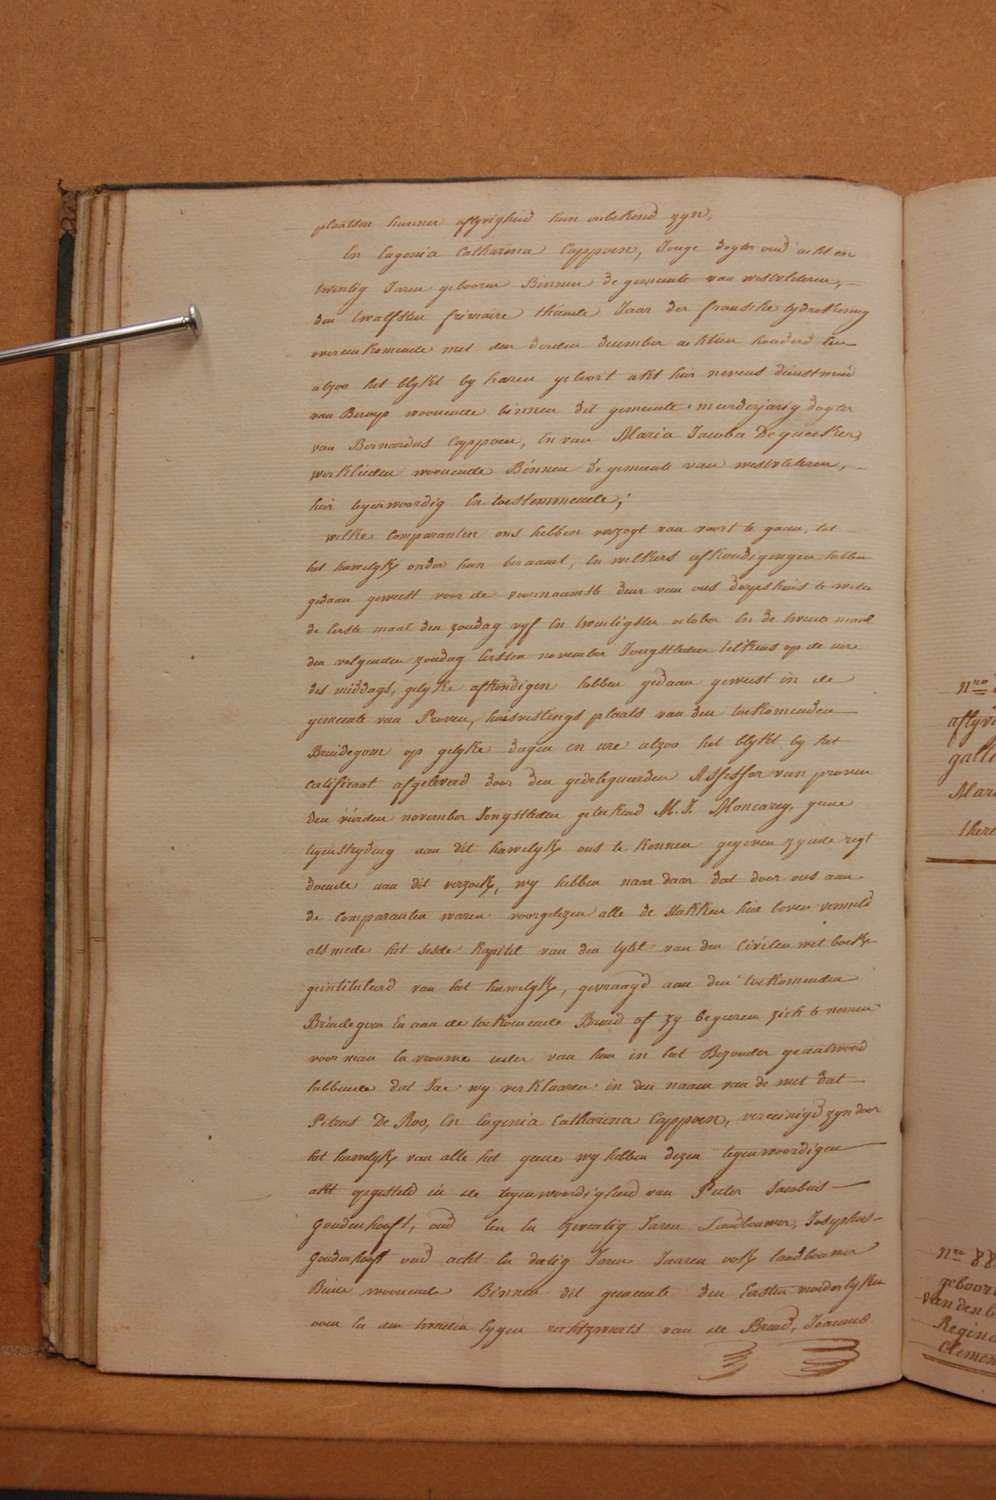 plaatsen hunner aflyvigheid hun onbekend zyn,
En Eugenia Catharina Cappoen, Jonge dogter oud acht en
twintig Jaren gebooren Binnen de gemeente van westvleteren,
den twalfsten frimaire thiende Jaar der fransche tydrekening
overeenkomende met den derden december achtien honderd een
alzoo het blykt by haren geboort akt hier nevens dienstmeid
van Beroep woonende binnen dit gemeente meerderjarig dogter
van Bernardus Cappoen, En van Maria Jacoba Dequecker,
werklieden woonende Binnen de gemeente van westvleteren,
hier tegenwoordig En toestemmende;
welke Comparanten ons hebben verzogt van voort te gaan tot
het huwelyk onder hun beraamt, En welkers afkondigingen hebben
gedaan geweest voor de voornaamste deur van ons dorpshuis te weten
de Eerste maal den zondag vyf En twintigsten october En de tweede maal
den volgenden zondag Eersten november Jongstleden telkens op de ure
des middags, gelyke afkondigen hebben gedaan geweest in de
gemeente van Proven, huisvestings plaats van den toekomenden
Bruidegom op gelyke dagen en ure alzoo het blykt by het
Certificaat afgeleverd door den gedelegueerden Assessor van proven
den vierden november Jongstleden geteekend M. J. Moncarey, geene
tegenstryding aan dit huwelyk ons te konnen gegeven zynde regt
doende aan dit verzoek, wy hebben naar daar dat door ons aan
de Comparanten waren voorgelezen alle de stukken hier boven vermeld
alsmede het sesde kapitel van den tytel van den Civilen wet boek
geintituleerd van het huwelyk, gevraagd aan den toekomenden
Bruidegom En aan de toekomende Bruid of zy begeeren zich te nemen
voor man En vrouwe ieder van hun in het Bezonder geantwoord
hebbende dat Jae wy verklaaren in den naam van de wet dat
Petrus De Roo, En Eugenia Catharina Cappoen, vereenigd zyn door
het huwelyk van alle het geene wy hebben dezen tegenwoordigen
akt opgesteld in de tegenwoordigheid van Pieter Jacobus
Goudenhooft, oud een En zeventig Jaren Landbouwer, Josephus
Goudenhooft oud acht En dertig Jaren ook landbouwer
Beide woonende Binnen dit gemeente den Eersten moederlyken
oom En den tweeden eygen rechtzweers van de Bruid, Joannes
Nro
aflyv
galli
Mari
ther
Nro 88
geboor
van den
Regina
Clemen